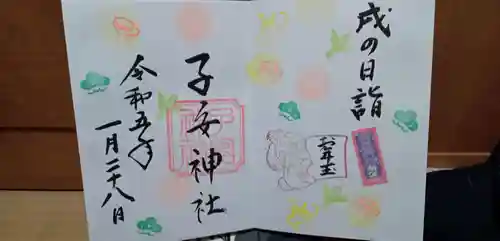 戌の日詣
子安神社
令和五年
一月二十八日